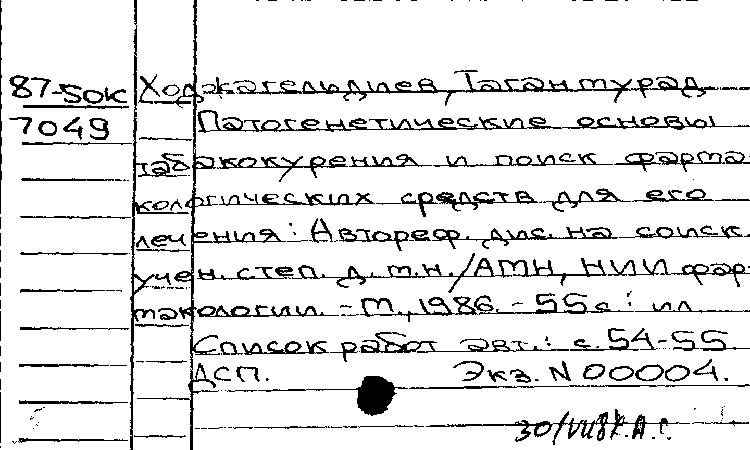 87-50к Ходжагельдиев, Тагантурад
7049 Патогенетические основы
табакокурения и поиск фарма
кологических средств для его
лечения: Автореф. дис. на соиск.
учен. степ. д. м. н. / АМН, НИИ фар
макологии. - М., 1986. - 55 с.: ил
Список работ авт.: с. 54-55.
ДСП. Экз. N 00004.